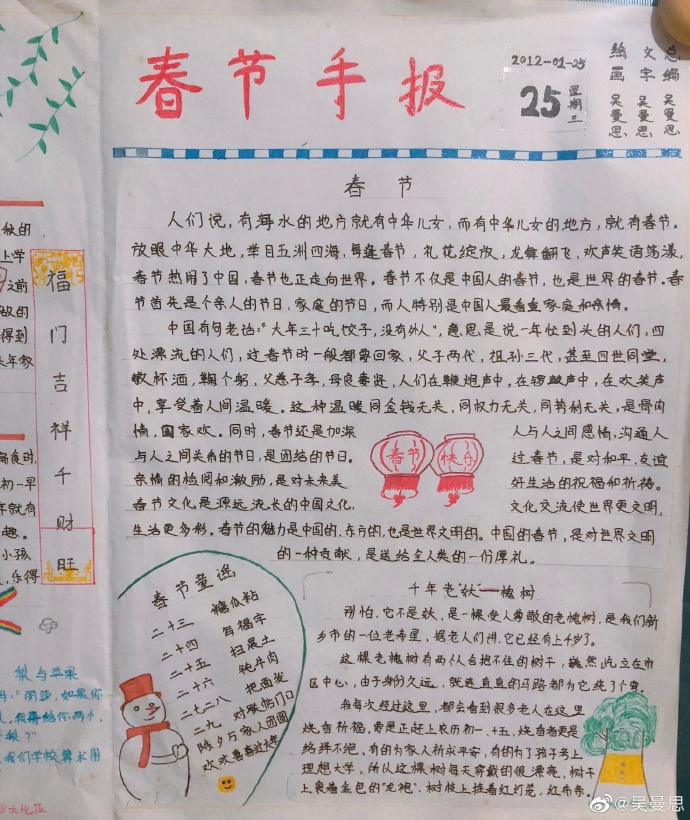 春节手报
2012-01-25
25
星期三
总编 吴曼思
文字 吴曼思
绘画 吴曼思
春节
人们说,有海水的地方就有中华儿女,而有中华儿女的地方,就有春节。
放眼中华大地,举目五洲四海,每逢春节,礼花绽放,龙狮翻飞,欢声笑语荡漾。
春节热闹了中国,春节也正走向世界。春节不仅是中国人的春节,也是世界的春节。春
节首先是个亲人的节日,家庭的节日,而人特别是中国人最看重家庭和亲情。
中国有句老话:“大年三十吃饺子,没有外人”,意思是说一年忙到头的人们,四
处漂流的人们,过春节时一般都要回家,父子两代,祖孙三代,甚至四世同堂,
敬杯酒,鞠个躬,父慈子孝,母良妻贤,人们在鞭炮声中,在锣鼓声中,在欢笑声
中,享受着人间温暖。这种温暖同金钱无关,同权力无关,同势利无关,是骨肉
情,国家欢。同时,春节还是加深
人与人之间感情,沟通人
与人之间关系的节日,是团结的节日。
过春节,是对和平,友谊
亲情的检阅和激励,是对未来美
好生活的祝福和祈祷。
春节文化是源远流长的中国文化,
文化交流使世界更文明,
生活更多彩。春节的魅力是中国的,东方的,也是世界文明的。中国的春节,是对世界文明
的一种贡献,是送给全人类的一份厚礼。
春节 快乐
春节童谣
二十三 糖瓜粘
二十四 写福字
二十五 扫晨土
二十六 炖牛肉
二七二八 把面发
二九 对联帖门口
除夕万家人团圆
欢欢喜喜过大年
千年老“妖”——槐树
别怕,它不是妖,是一棵受人尊敬的老槐树,是我们新
乡市的一位老寿星,据老人们讲,它已经有上千岁了。
这棵老槐树有两个人合抱不住的树干,巍然屹立在市
区中心,由于身份久远,就连直直的马路都为它绕了个弯。
我每次经过这里,都会看到很多老人在这里
烧香祈福,要是正赶上农历初一、十五,烧香者更是
络绎不绝,有的为家人祈求平安,有的为了孩子考上
理想大学,所以这棵树每天穿戴的很漂亮,树干
上裹着金色的“龙袍”,树枝上挂着红灯笼,红布条。
福门吉祥千财旺
做的
上学
之前
做的
得到
来年家
初一早
年就有
趣。
小孩
,乐得
梨与苹果
如果你
我再给你两个,
我们学校算术用
@吴曼思